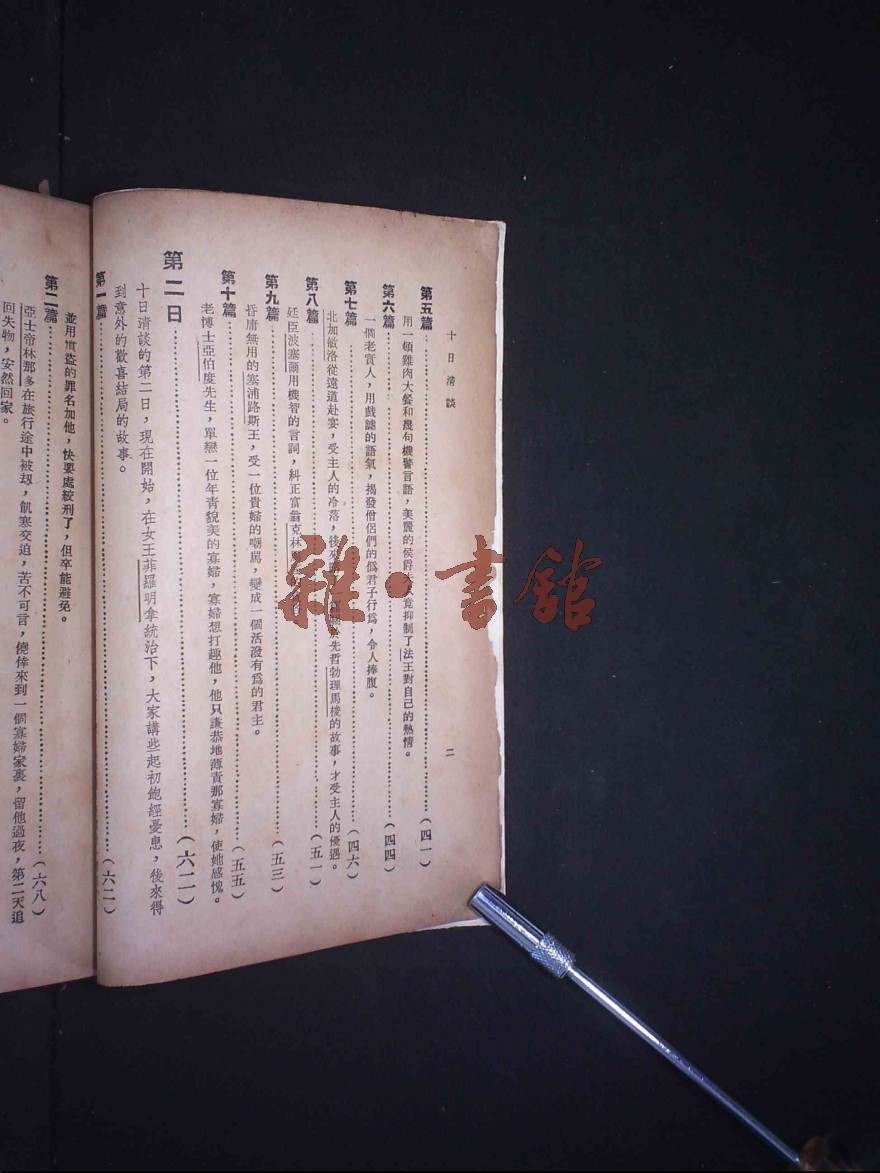 十日清談
二
第五篇……(四一)
用一頓雞肉大餐和幾句機警言語，美麗的侯爵竟抑制了法王對自己的熱情。
第六篇……(四四)
一個老實人，用戲謔的語氣，揭發僧侶們的僞君子行爲，令人捧腹。
第七篇……(四六)
北加敏洛從遠道赴宴，受主人的冷落，後來先哲勃理馬梭的故事，才受主人的優遇。
第八篇……(五一)
廷臣波塞爾用機智的言詞，糾正富翁克林
第九篇……(五三)
昏庸無用的塞浦路斯王，受一位貴婦的嘲罵，變成一個活潑有爲的君主。
第十篇……(五五)
老博士亞伯度先生，單戀一位年青貌美的寡婦，寡婦想打趣他，他只謙恭地薄責那寡婦，使她感愧。
第二日……(六二)
十日清談的第二日，現在開始，在女王菲羅明拿統治下，大家講些起初飽經憂患，後來得
到意外的歡喜結局的故事。
第一篇……(六二)
並用盜的罪名加他，快要處絞刑了，但卒能避免。
第二篇……(六八)
亞士帝林那多在旅行途中被刼，飢寒交迫，苦不可言，僥倖來到一個寡婦家裏，留他過夜，第二天追
回失物，安然回家。
雜·書館